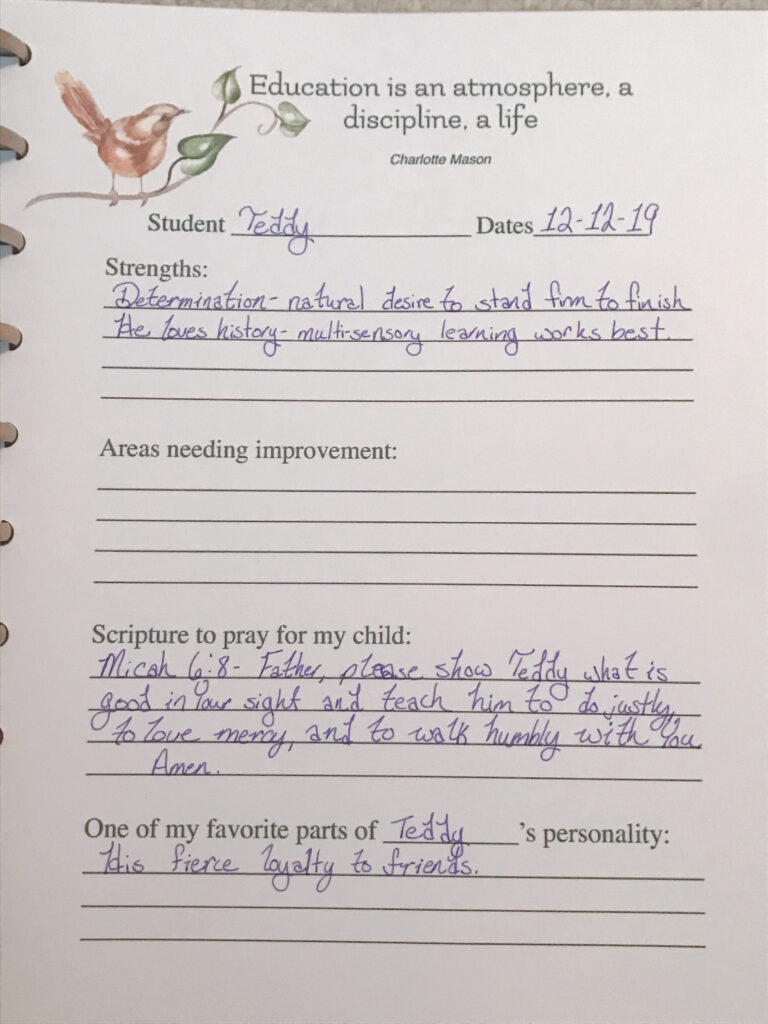 Education is an atmosphere, a
discipline, a life
Charlotte Mason
Student Teddy Dates 12-12-19
Strengths:
Determination- natural desire to stand firm to finish
He loves history- multi-sensory learning works best.
Areas needing improvement:
Scripture to pray for my child:
Micah 6:8- Father, please show Teddy what is
good in Your sight and teach him to do justly,
to love mercy, and to walk humbly with You.
Amen.
One of my favorite parts of Teddy's personality:
His fierce loyalty to friends.